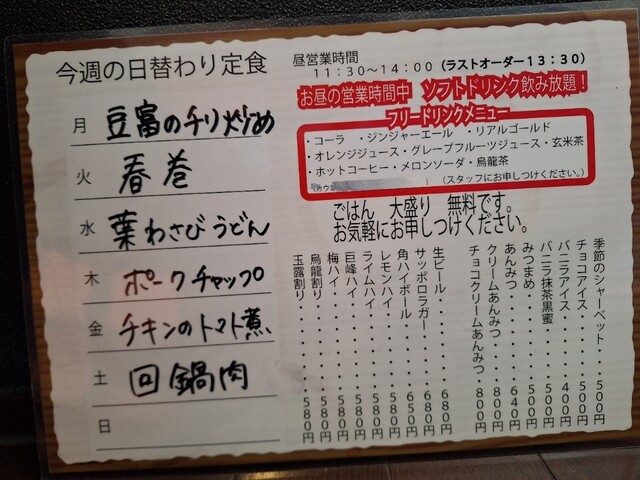 今週の日替わり定食
月 豆富のチリ炒め
火 春巻
水 葉わさびうどん
木 ポークチャップ
金 チキンのトマト煮
土 回鍋肉
日
昼営業時間
11:30～14:00(ラストオーダー13:30)
お昼の営業時間中 ソフトドリンク飲み放題!
フリードリンクメニュー
・コーラ ・ジンジャーエール ・リアルゴールド
・オレンジジュース・グレープフルーツジュース・玄米茶
・ホットコーヒー・メロンソーダ・烏龍茶
(スタッフにお申しつけください。)
ごはん 大盛り 無料です。
お気軽にお申しつけください。
季節のシャーベット・・500円
チョコアイス・・・・・500円
バニラアイス・・・・・400円
バニラ抹茶黒蜜・・・・500円
みつまめ・・・・・・・500円
あんみつ・・・・・・・640円
クリームあんみつ・・・800円
チョコクリームあんみつ・800円
生ビール・・・・・・・680円
サッポロラガー・・・・680円
角ハイボール・・・・・650円
レモンハイ・・・・・・580円
ライムハイ・・・・・・580円
巨峰ハイ・・・・・・・580円
梅ハイ・・・・・・・・580円
烏龍割り・・・・・・・580円
玉露割り・・・・・・・580円